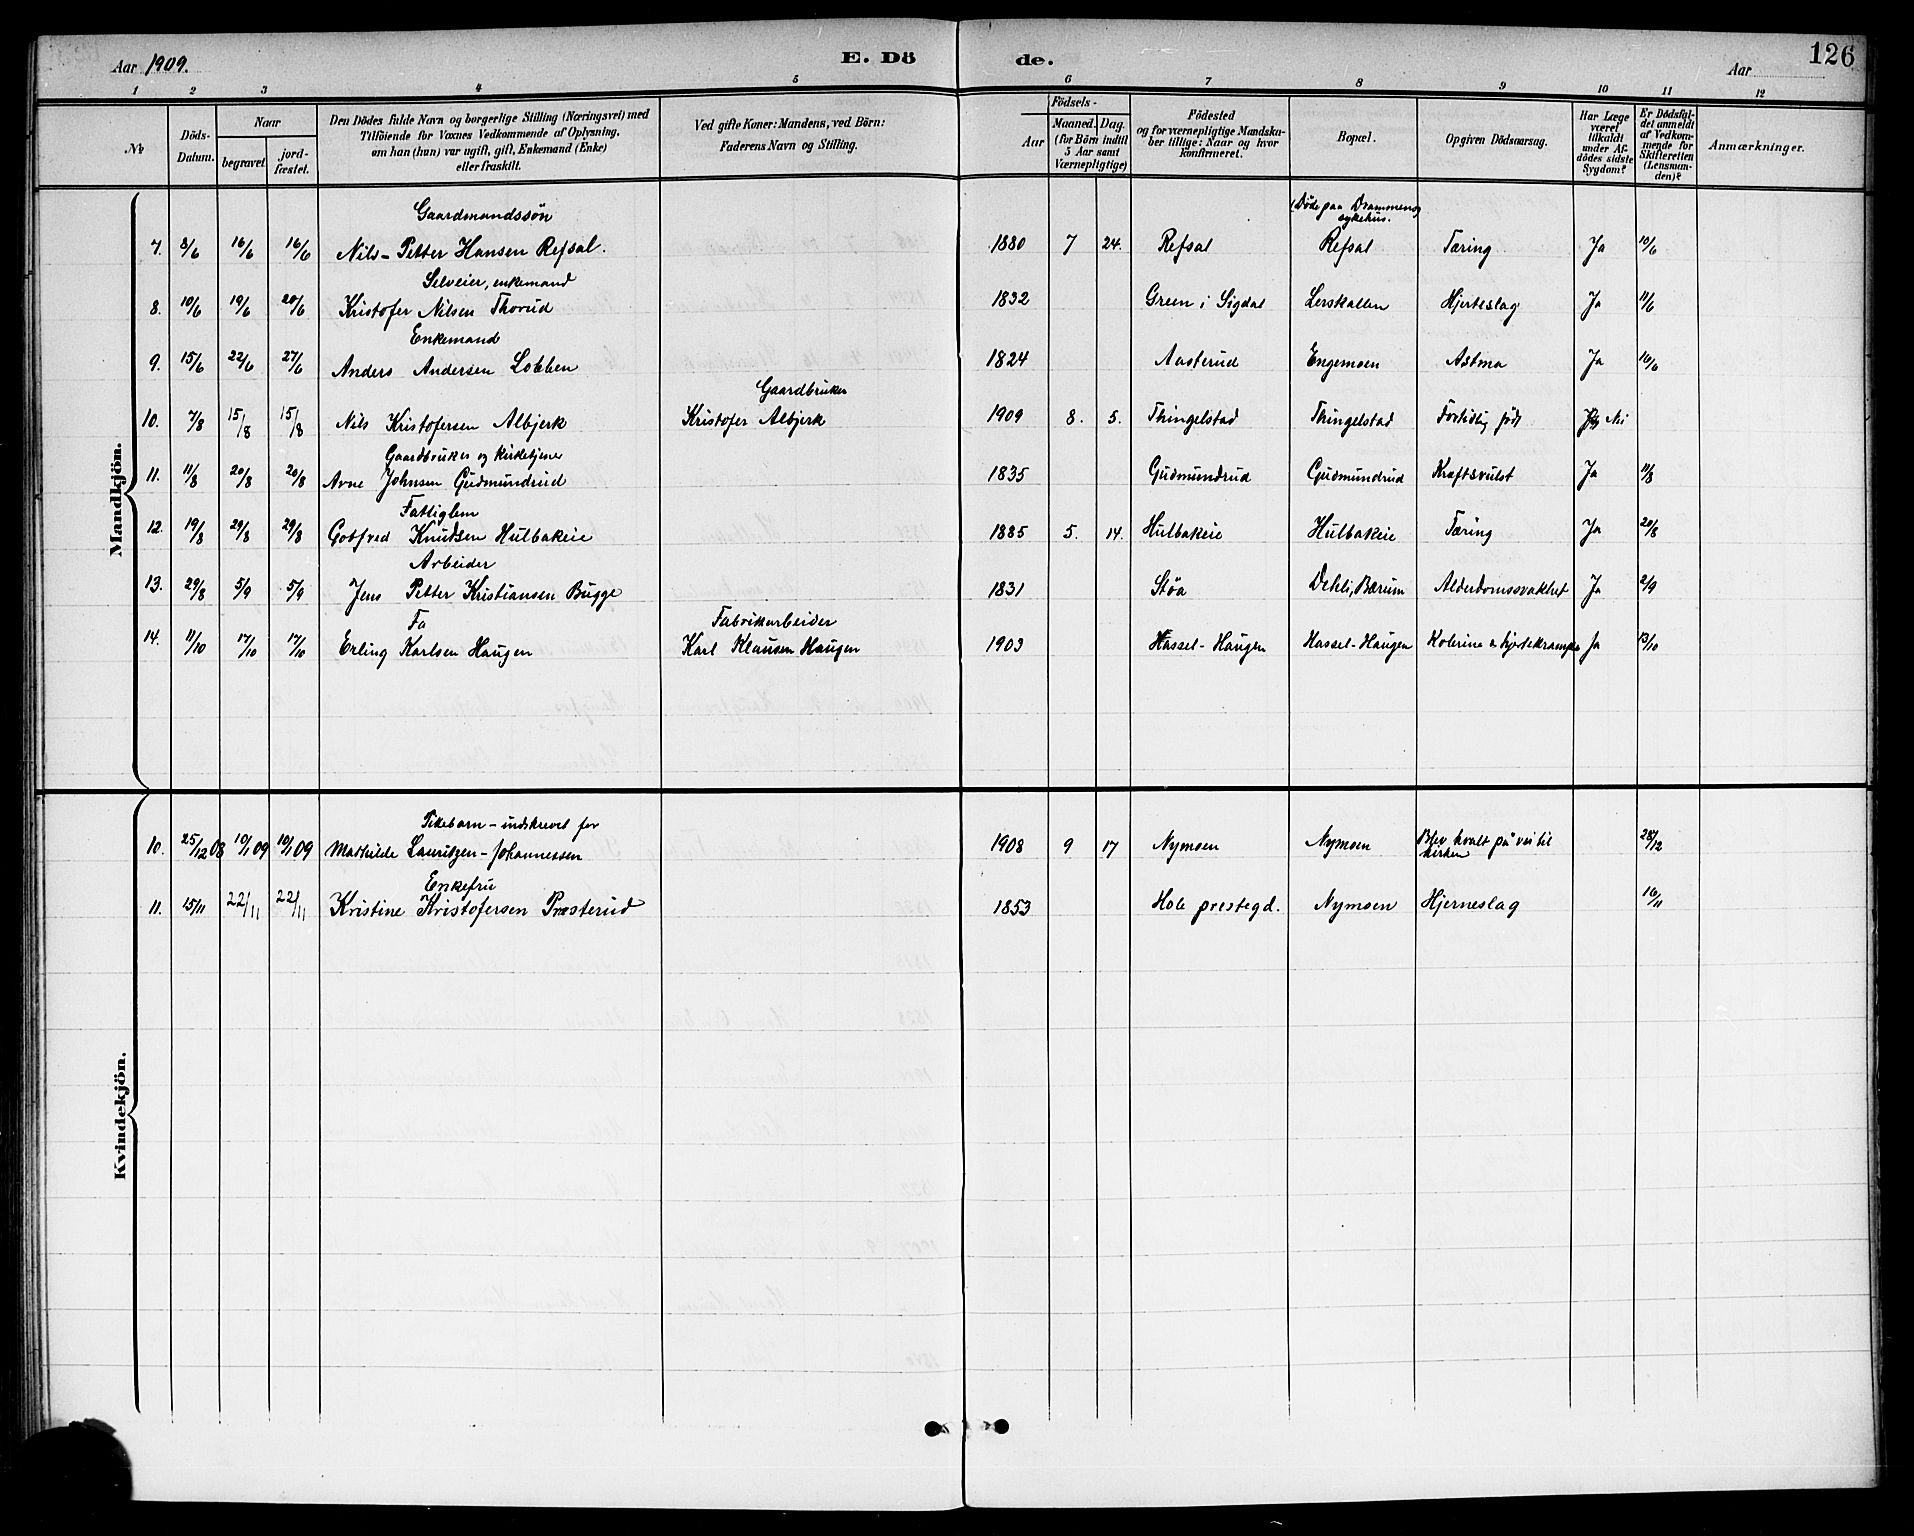 Aar 1909. E. Dö de. Aar 126
1 2 3 4 5 6 7 8 9 10 11 12
№ Döds-Datum. Naar begravet jordfæstet. Den Dödes fulde Navn og borgerlige Stilling (Næringsvei) med Tilföiende for Voxnes Vedkommende af Oplysning, om han (hun) var ugift, gift, Enkemand (Enke) eller fraskilt. Ved gifte Koner: Mandens, ved Börn: Faderens Navn og Stilling. Födsels- Aar Maaned. Dag. (for Börn indtil 5 Aar samt Værnepligtige) Födested og for værnepligtige Mandskaber tillige: Naar og hvor konfirmeret. Bopæl. Opgiven Dödsaarsag. Har Læge været tilkaldt under Afdödes sidste Sygdom? Er Dödsfaldet anmeldt af Vedkommende for Skifteretten (Lensmanden)? Anmærkninger.
Mandkjön.
Gaardmandssön (Döde paa Drammens sykehus.
7. 8/6 16/6 16/6 Nils-Petter Hansen Refsal. 1880 7 24. Refsal Refsal Tæring Ja 10/6
Selveier, enkemand
8. 10/6 19/6 20/6 Kristofer Nilsen Thorud 1832 Green i Sigdal Lerskallen Hjerteslag Ja 11/6
Enkemand
9. 15/6 22/6 27/6 Anders Andersen Lobben 1824 Aasterud Engemoen Astma Ja 16/6
Gaardbruker
10. 7/8 15/8 15/8 Nils Kristofersen Albjerk Kristofer Albjerk 1909 8. 5. Thingelstad Thingelstad Fortidlig födt Nei
Gaardbruker og kirketjener
11. 11/8 20/8 20/8 Arne Johnsen Gudmundrud 1835 Gudmundrud Gudmundrud Kræftsvulst Ja 11/8
Fattiglem
12. 19/8 29/8 29/8 Gotfred Knudsen Hulbakeie 1885 5. 14. Hulbakeie Hulbakeie Tæring Ja 20/8
Arbeider
13. 29/8 5/9 5/9 Jens Petter Kristiansen Bugge 1831 Støa Dehli, Bærum Alderdomssvakhet Ja 2/9
Fa Fabrikarbeider
14. 11/10 17/10 17/10 Erling Karlsen Haugen Karl Klausen Haugen 1903 Hassel-Haugen Hassel-Haugen Kolerine & hjertekrampe Ja 13/10
Kvindekjön.
Pikebarn - indskrevet for
10. 25/12 08 10/1 09 10/1 09 Mathilde Lauritzen-Johannessen 1908 9 17 Nymoen Nymoen Blev kvalt på vei til kirken 28/12
Enkefru
11. 15/11 22/11 22/11 Kristine Kristofersen Presterud 1853 Hole prestegd. Nymoen Hjerneslag 16/11